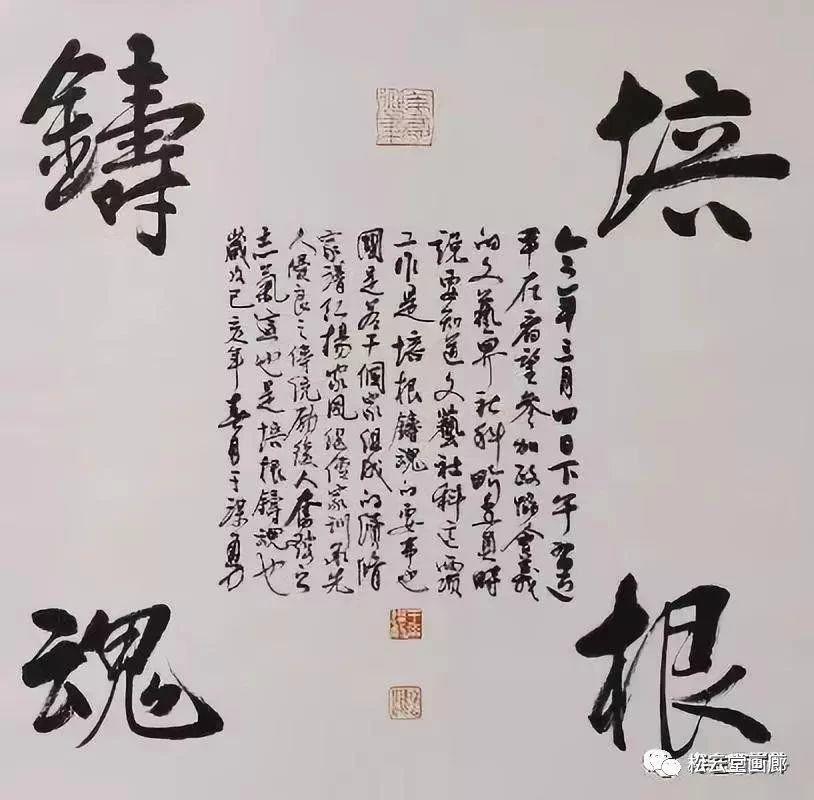 培
根
鑄
魂
年三月四日下午
平在看望參加政協會議
的文藝界社科界委員時
說要知道文藝社科這兩項
工作是培根鑄魂的要事也
國是若干個家組成的續脩
家譜弘揚家風繼傳家訓承先
人優良之傳統勵後人奮發之
志氣這也是培根鑄魂也
歲次己亥年春月于梁勇
松云堂画廊